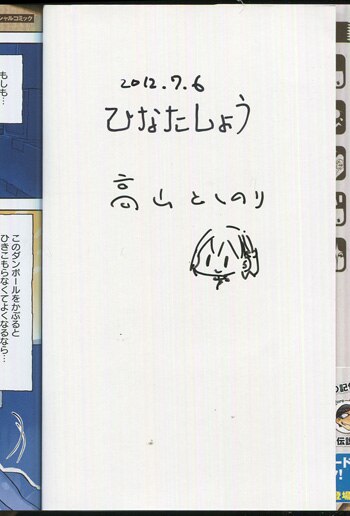 シャルコミック
もしも…
このダンボールをかぶると
ひきこもらなくてよくなるなら…
2012.7.6
ひなたしょう
高山としのり
の記
伝説
ード
!
登場